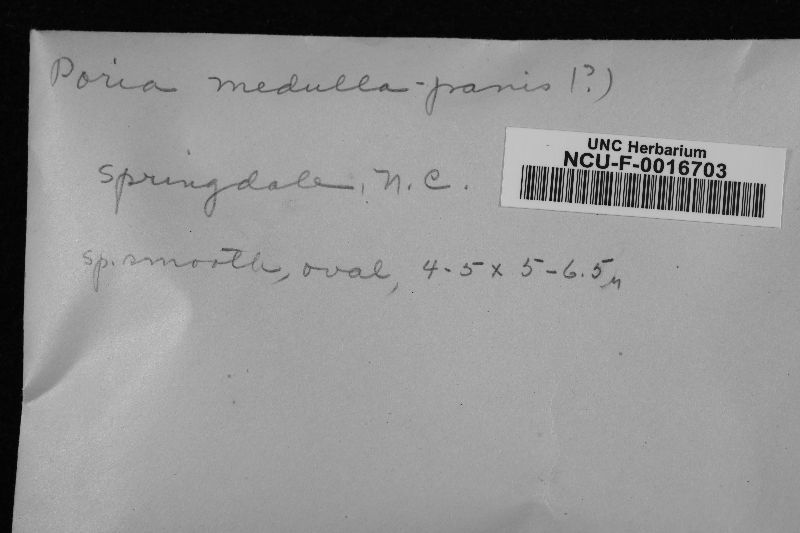 Poria medulla-panis (?)
UNC Herbarium
NCU-F-0016703
Springdale, N.C.
sp. smooth, oval, 4-5 x 5-6.5μ